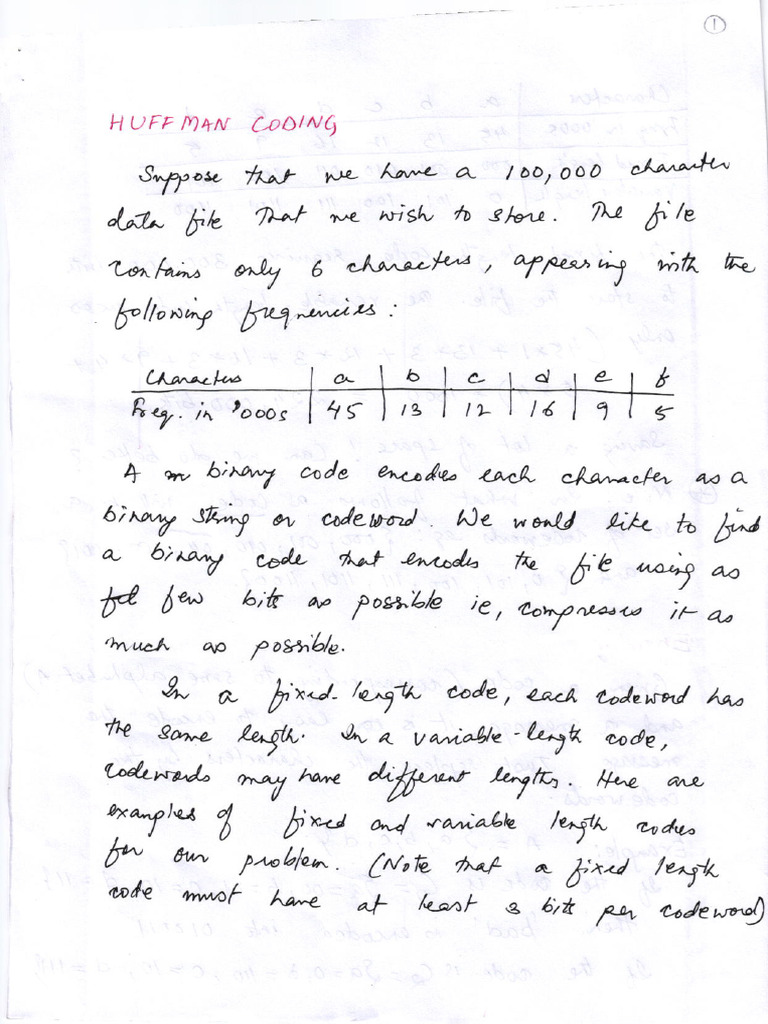 1
HUFFMAN CODING
Suppose that we have a 100,000 character
data file that we wish to store. The file
contains only 6 characters, appearing with the
following frequencies:
Characters a b c d e f
Freq. in '000s 45 13 12 16 9 5
A binary code encodes each character as a
binary string or codeword. We would like to find
a binary code that encodes the file using as
few bits as possible ie, compresses it as
much as possible.
In a fixed-length code, each codeword has
the same length. In a variable-length code,
codewords may have different lengths. Here are
examples of fixed and variable length codes
for our problem. (Note that a fixed length
code must have at least 3 bits per codeword)